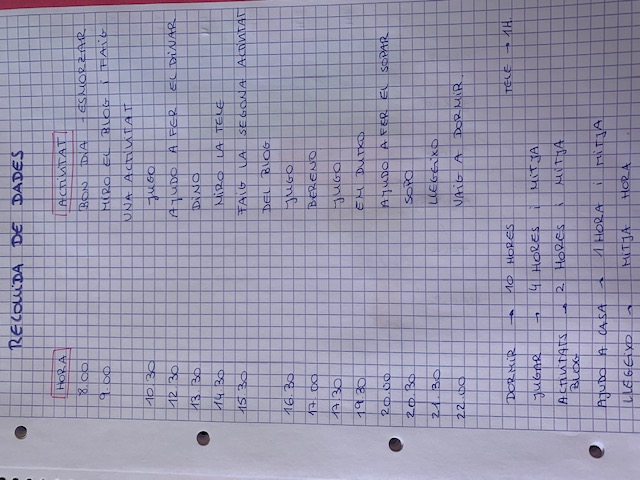 RECOLLIDA DE DADES
HORA ACTIVITAT
8.00 BON DIA - ESMORZAR
9.00 MIRO EL BLOG I FAIG
UNA ACTIVITAT
10.30 JUGO
12.30 AJUDO A FER EL DINAR
13.30 DINO
14.30 MIRO LA TELE
15.30 FAIG LA SEGONA ACTIVITAT
DEL BLOG.
16.30 JUGO
17.00 BERENO
17.30 JUGO
19.30 EM DUTXO
20.00 AJUDO A FER EL SOPAR
20.30 SOPO
21.30 LLEGEIXO
22.00 VAIG A DORMIR.
DORMIR → 10 HORES TELE → 1H.
JUGAR → 4 HORES I MITJA
ACTIVITATS → 2 HORES I MITJA
BLOG
AJUDO A CASA → 1 HORA I MITJA
LLEGEIXO → MITJA HORA